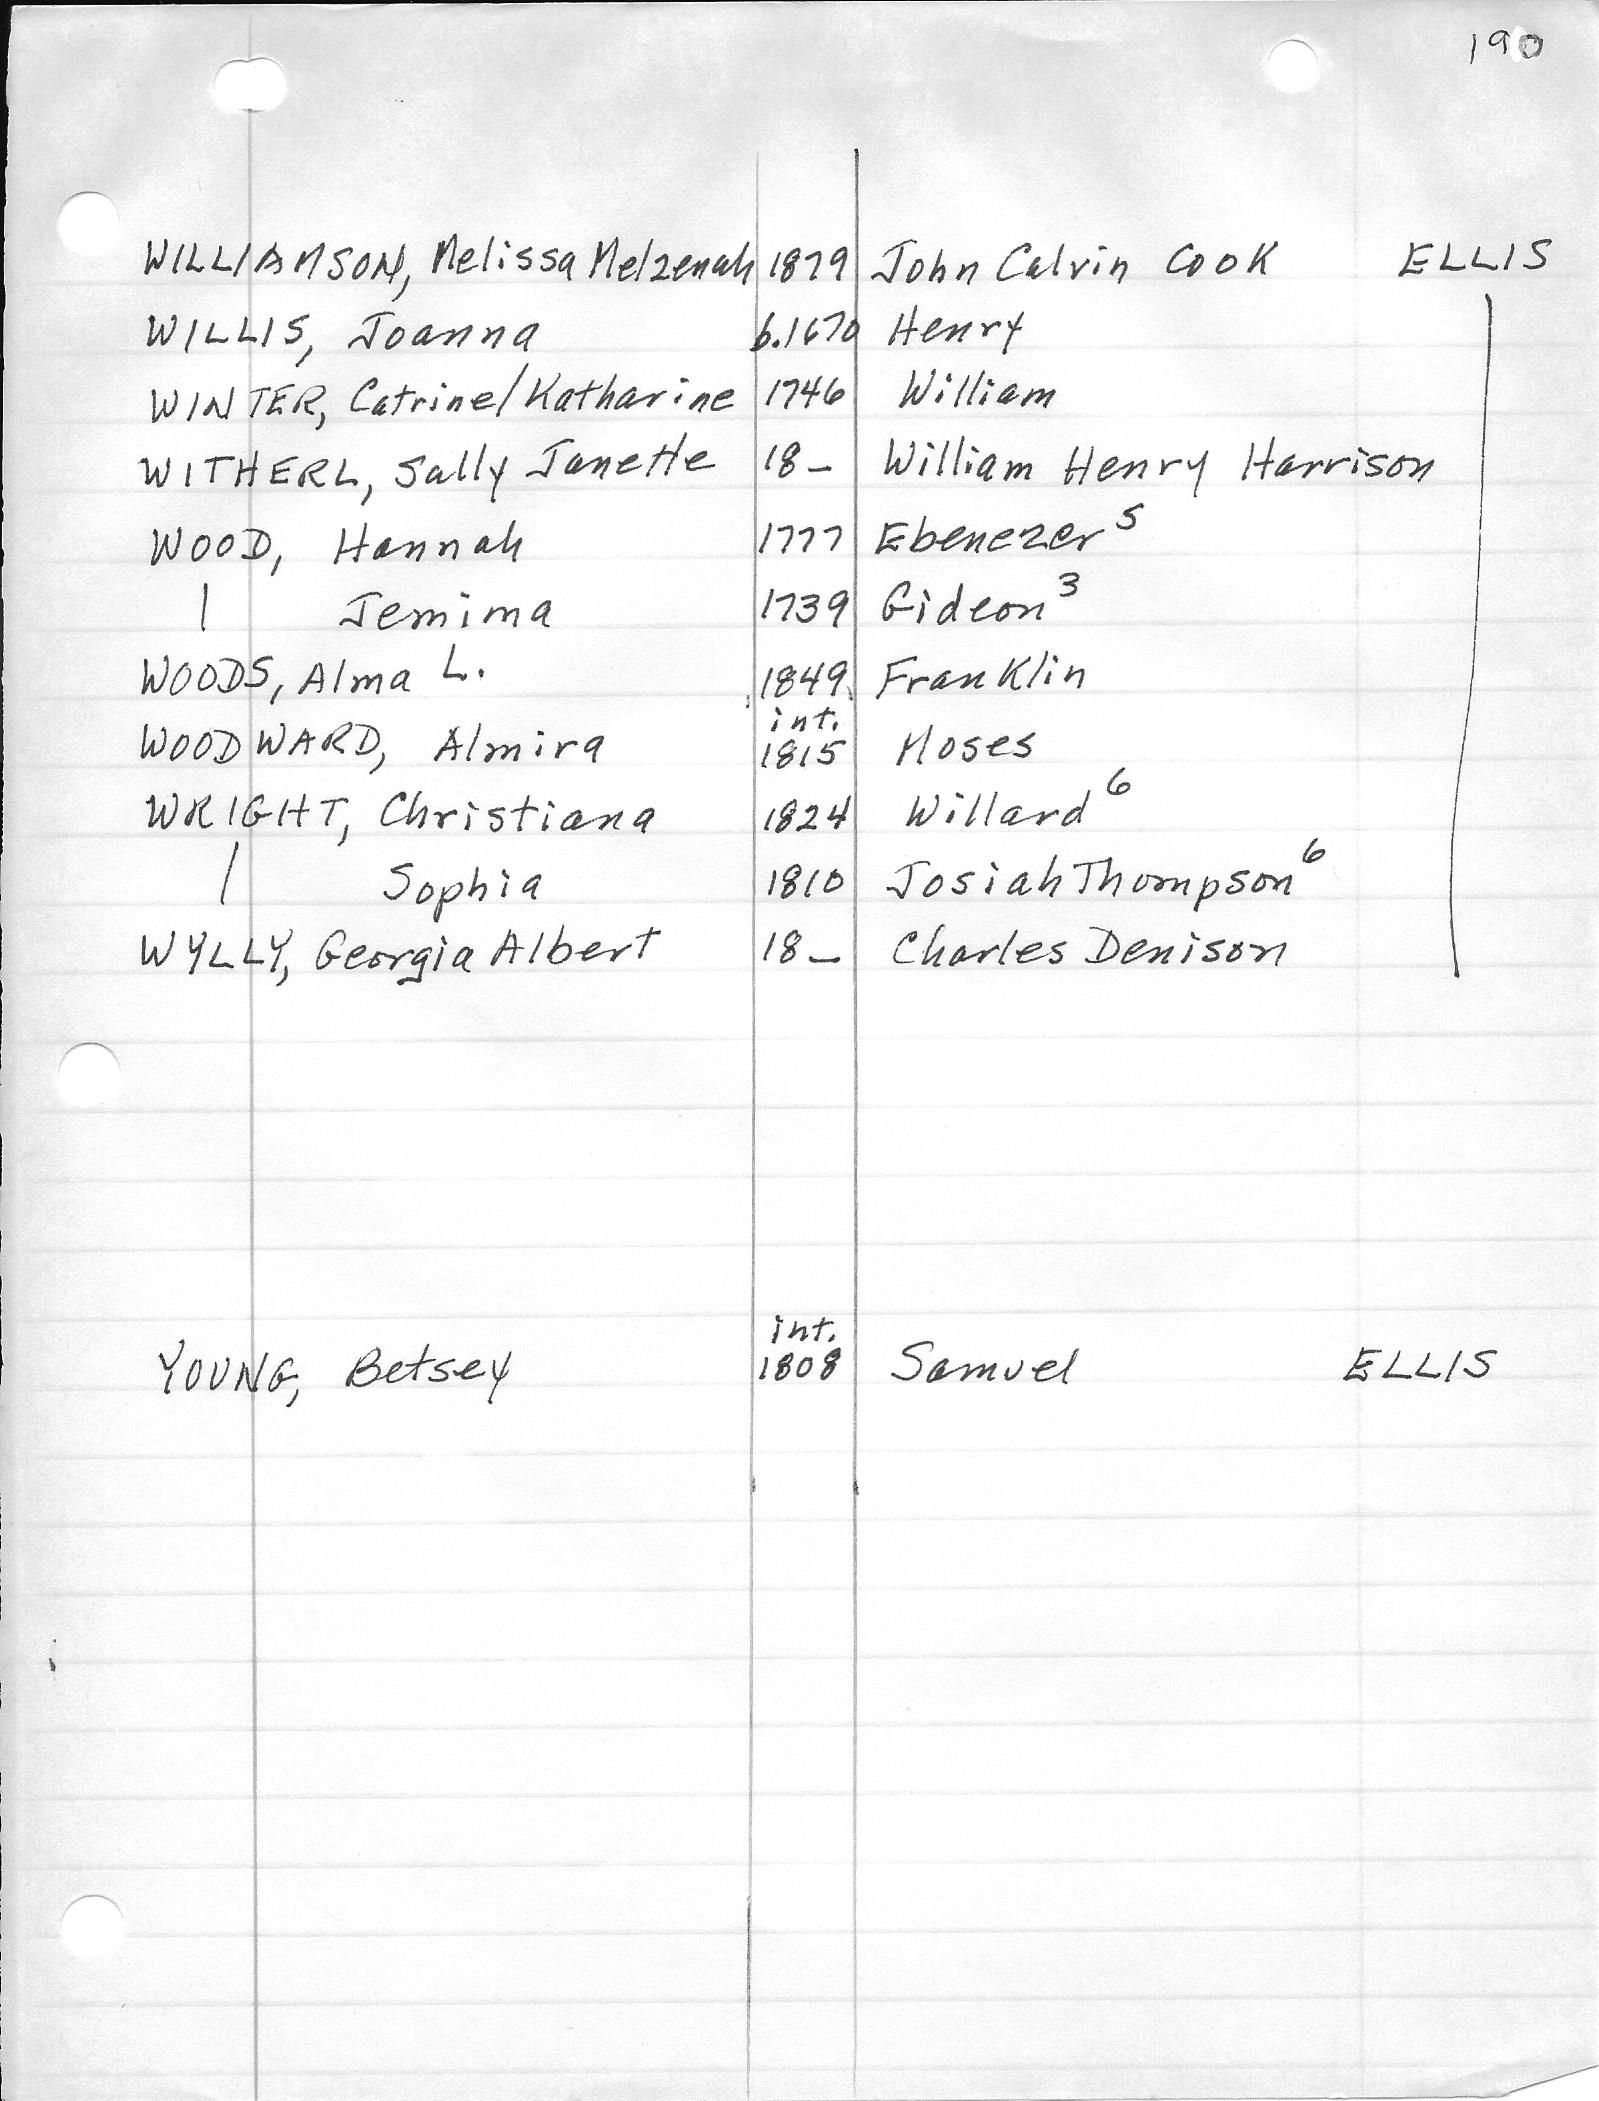 190
WILLIAMSON, Melissa Melzenah 1879 John Calvin Cook ELLIS
WILLIS, Joanna b.1670 Henry
WINTER, Catrine/Katharine 1746 William
WITHERL, Sally Janette 18_ William Henry Harrison
WOOD, Hannah 1777 Ebenezer⁵
| Jemima 1739 Gideon³
WOODS, Alma L. 1849 Franklin
int.
WOODWARD, Almira 1815 Moses
WRIGHT, Christiana 1824 Willard⁶
| Sophia 1810 Josiah Thompson⁶
WYLLY, Georgia Albert 18_ Charles Denison
int.
YOUNG, Betsey 1808 Samuel ELLIS